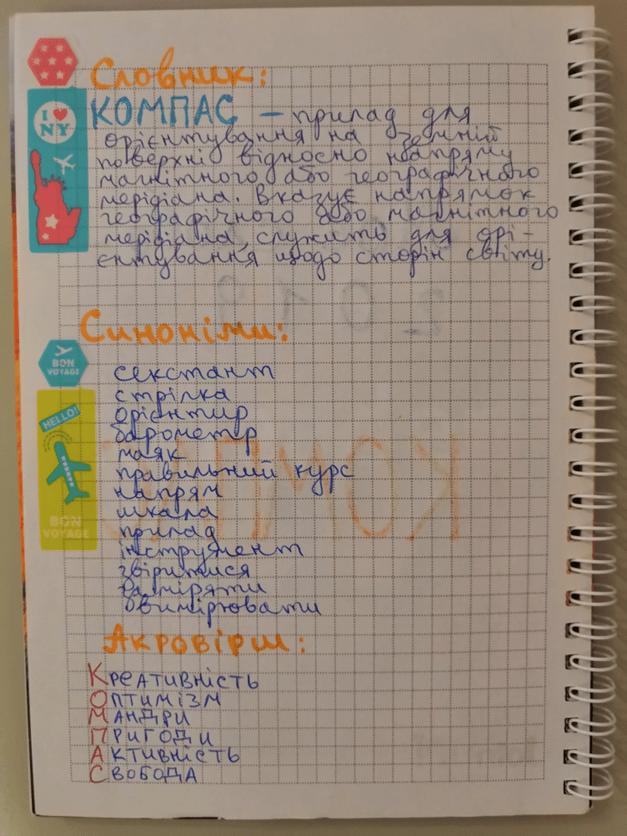 Словник:
I ❤
NY
КОМПАС – прилад для
орієнтування на земній
поверхні відносно напряму
магнітного або географічного
меридіана. Вказує напрямок
географічного або магнітного
меридіана, служить для орі-
єнтування щодо сторін світу.
Синоніми:
BON
VOYAGE
секстант
стрілка
орієнтир
HELLO!
барометр
маяк
правильний курс
напрям
шкала
BON
VOYAGE
прилад
інструмент
звіритися
вимірювати
Акровірш:
Креативність
Оптимізм
Мандри
Пригоди
Активність
Свобода